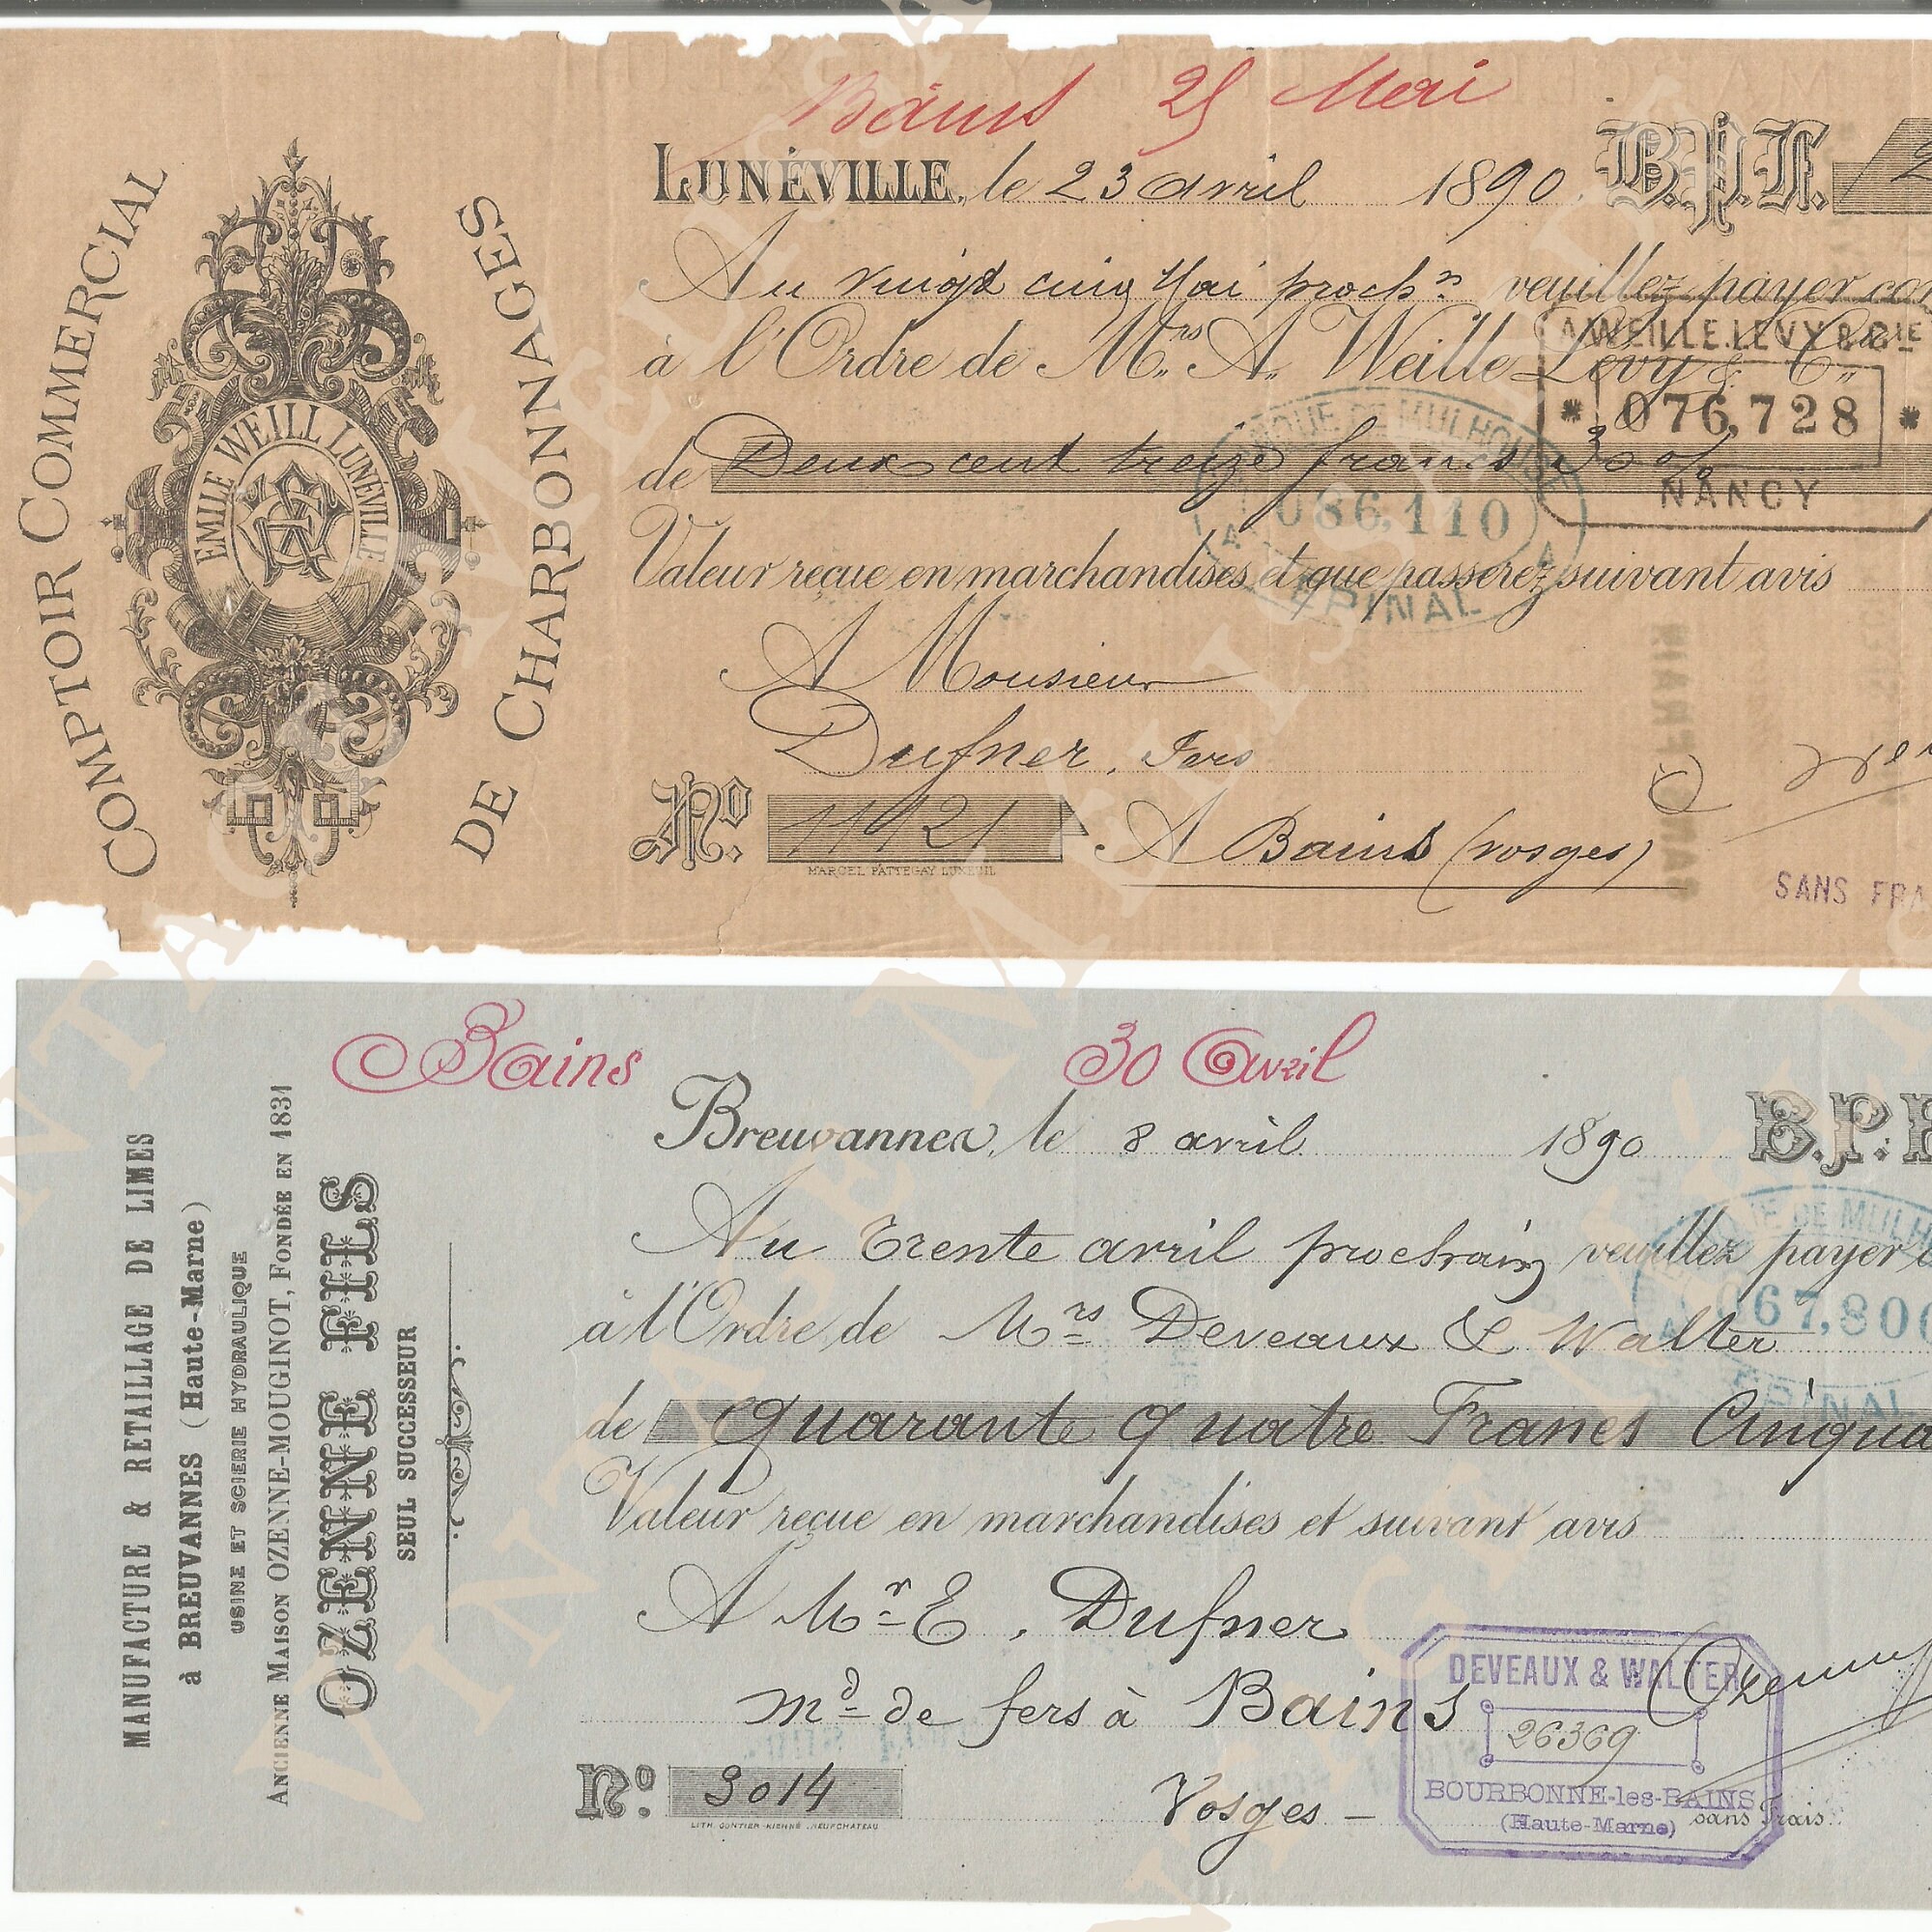 Bains 25 Mai
LUNÉVILLE, le 23 avril 1890 B.P.F.
Au vingt cinq Mai proch.n veuillez payer
à l'Ordre de M.rs A. Weille Lévy & C.ie
A. WEILLE. LEVY & CIE
* 076,728 *
NANCY
de Deux cent treize francs 30 %
BANQUE DE MULHOUSE
086,110
EPINAL
Valeur reçue en marchandises et que passerez suivant avis
A Monsieur
Dufner, Fers
No. 11921 A Bains (vosges)
SANS
COMPTOIR COMMERCIAL
DE CHARBONNAGES
EMILE WEILL LUNÉVILLE
Bains 30 Avril
Breuvannes, le 8 avril 1890 B.P.
Au Trente avril prochain veuillez payer
à l'Ordre de Mrs Deveaux & Walter
067,80
EPINAL
de quarante quatre Francs
Valeur reçue en marchandises et suivant avis
A Mr E. Dufner
md de fers à Bains
No. 3014 Vosges –
LITH. GONTIER-KIENNÉ, NEUFCHATEAU
DEVEAUX & WALTER
26369
BOURBONNE-les-BAINS
(Haute-Marne)
sans frais
MANUFACTURE & RETAILLAGE DE LIMES
à BREUVANNES (Haute-Marne)
USINE ET SCIERIE HYDRAULIQUE
ANCIENNE MAISON OZENNE-MOUGINOT, FONDÉE EN 1831
OZENNE FILS
SEUL SUCCESSEUR